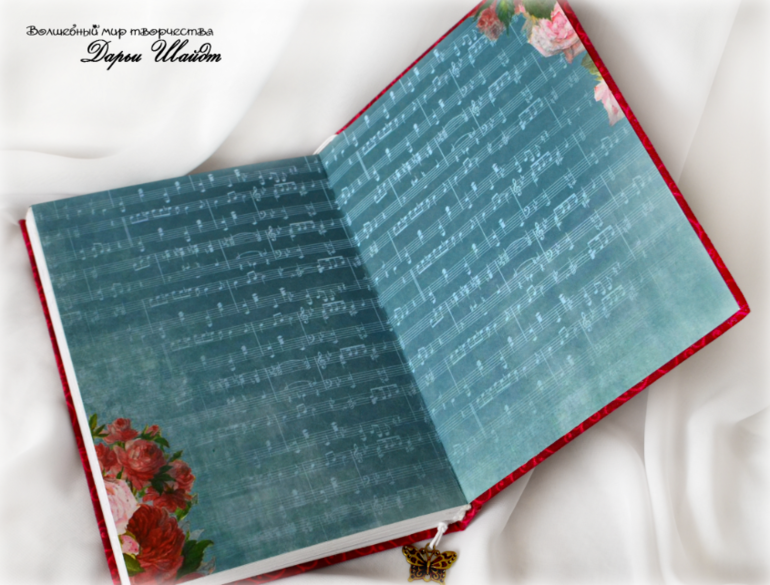 Волшебный мир творчества
Дарьи Шайдт